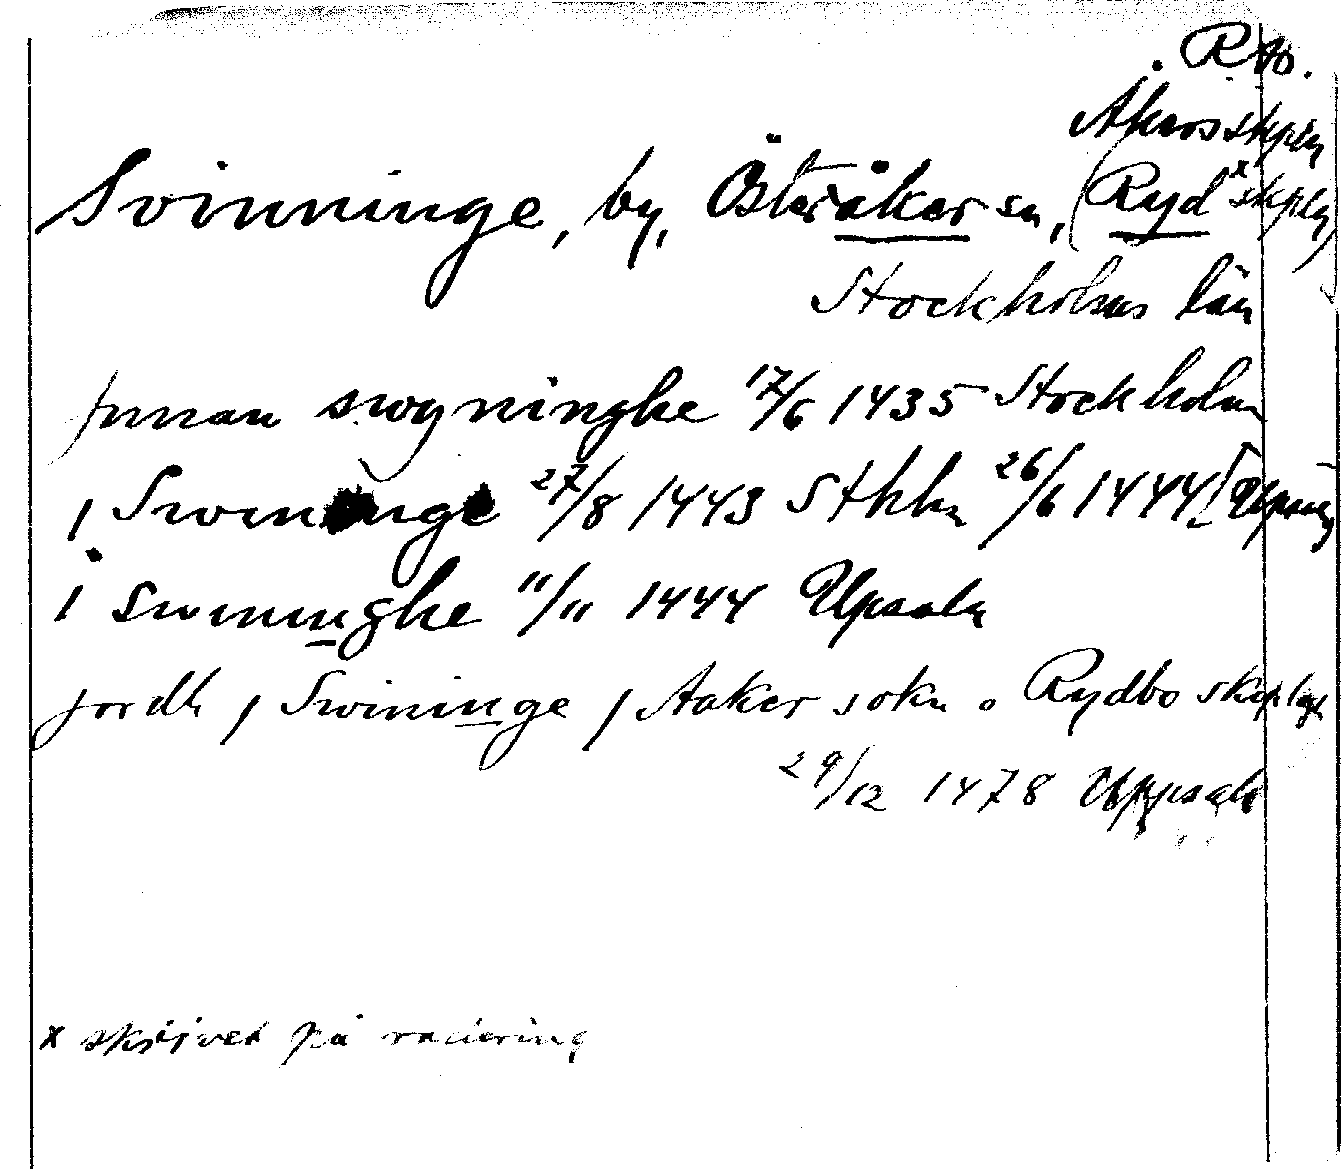 . RAO.
Åkersskpslg
Svinninge, by, Österåker sn, (Ryd x skpslg)
Stockholms län
jnnan swgninghe 17/6 1435 Stockholm
j Swininge 27/8 1443 Sthlm 26/6 1444 [Upsala]
i swininghe 11/11 1444 Upsala
jordh j Swininge j Aaker sokn o Rydbo skeplagh
29/12 1478 Uppsala
x skrivet på radering